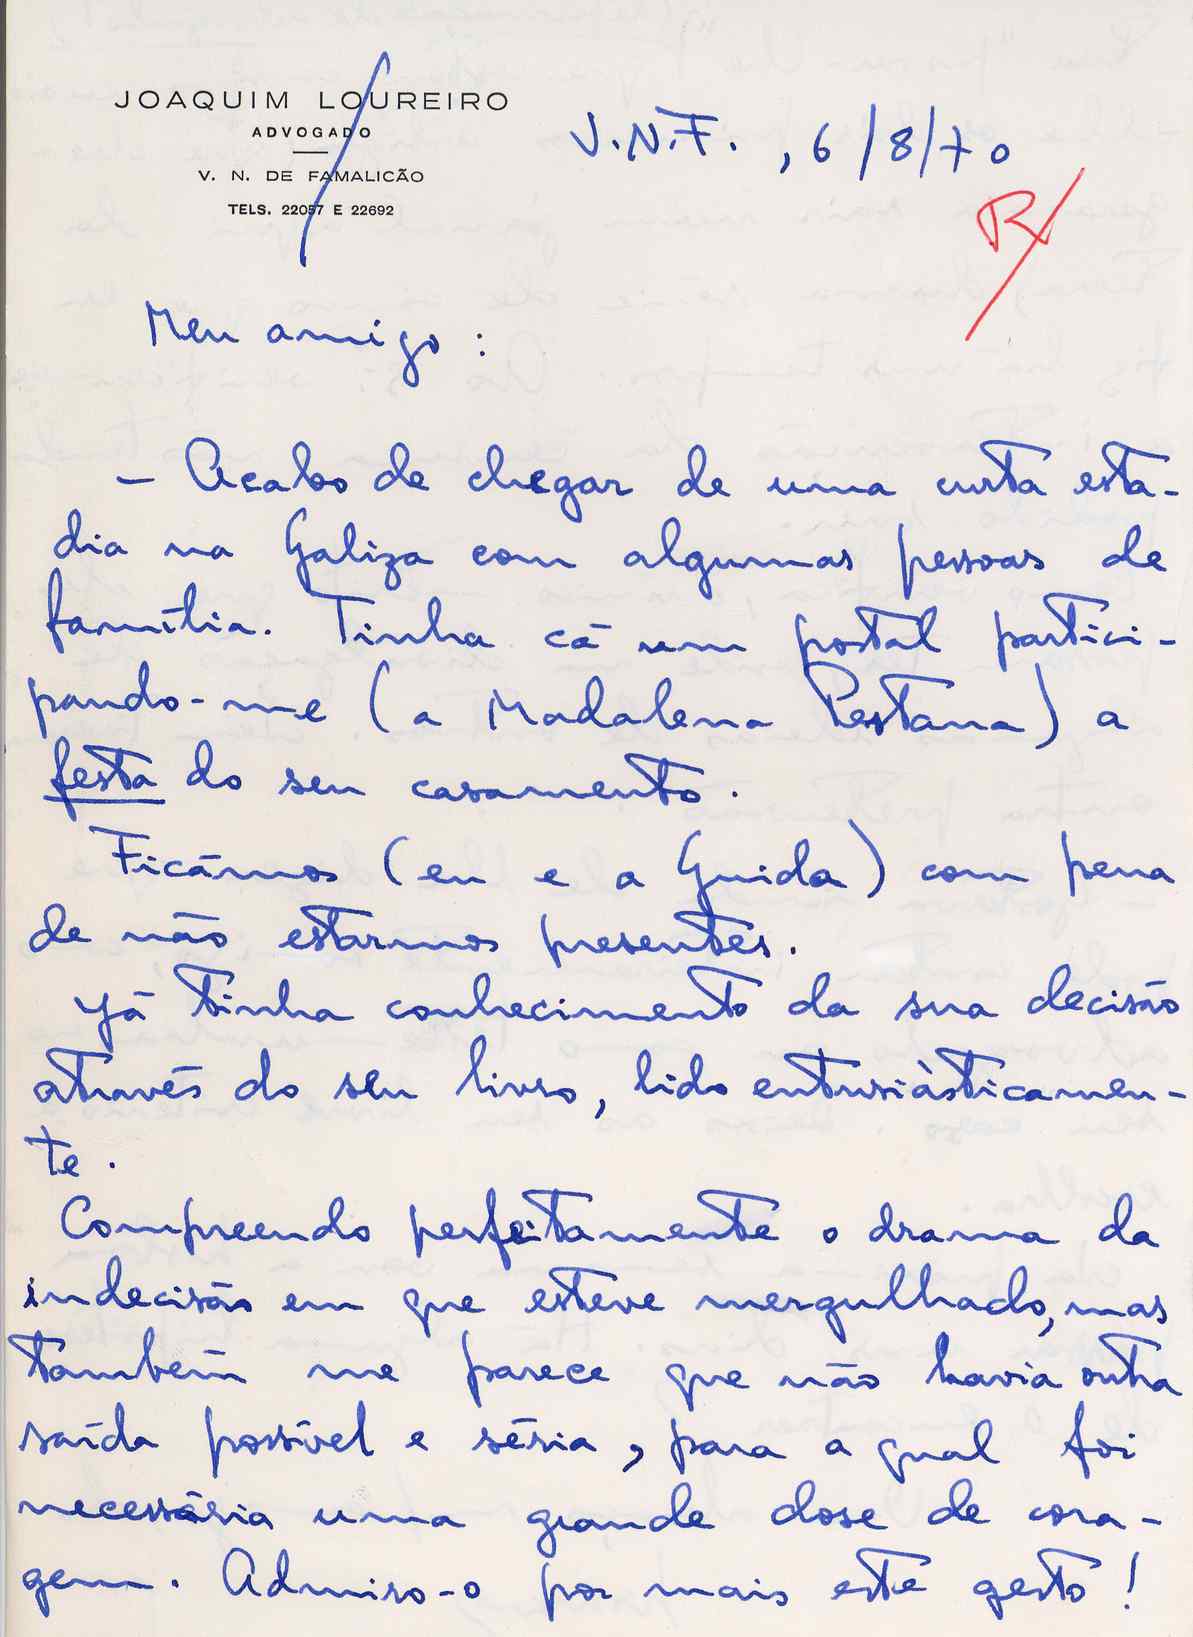 JOAQUIM LOUREIRO
ADVOGADO
V. N. DE FAMALICÃO
TELS. 22057 E 22692
V.N.F. , 6/8/70
R
Meu amigo :
- Acabo de chegar de uma curta esta-
dia na Galiza com algumas pessoas de
família. Tinha cá um postal partici-
pando-me (a Madalena Pestana) a
festa do seu casamento.
Ficámos (eu e a Guida) com pena
de não estarmos presentes.
Já tinha conhecimento da sua decisão
através do seu livro, lido entusiàsticamen-
te.
Compreendo perfeitamente o drama da
indecisão em que esteve mergulhado, mas
também me parece que não havia outra
saída possível e séria, para a qual foi
necessária uma grande dose de cora-
gem. Admiro-o por mais este gesto!